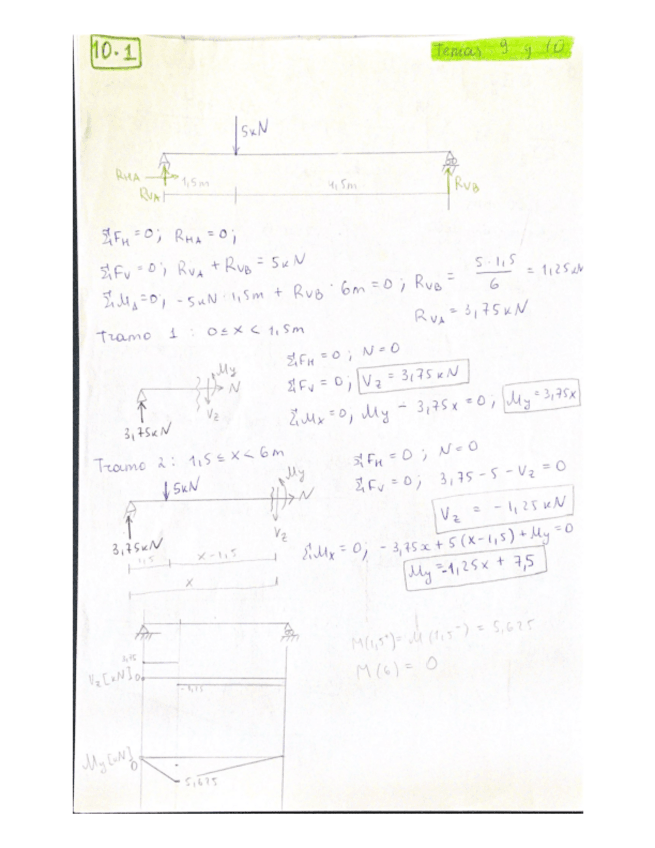 10.1
temas 9 y 10
5kN
RHA
RVA
1,5m
4,5m
RVB
ΣFH=0; RHA=0;
ΣFV=0; RVA + RVB = 5kN
ΣMA=0; -5kN·1,5m + RVB·6m=0; RVB = 5·1,5/6 = 1,25kN
RVA = 3,75kN
Tramo 1: 0≤x<1,5m
My
N
Vz
3,75kN
ΣFH=0; N=0
ΣFV=0; Vz = 3,75kN
ΣMx=0, My - 3,75x=0; My=3,75x
Tramo 2: 1,5≤x<6m
5kN
My
N
Vz
3,75kN
1,5
x-1,5
x
ΣFH=0; N=0
ΣFV=0; 3,75-5-Vz=0
Vz = -1,25kN
ΣMx=0; -3,75x+5(x-1,5)+My=0
My=-1,25x + 7,5
M(1,5⁺)=M(1,5⁻)=5,625
M(6)=0
Vz[kN]
0
My[kN]
0
5,625